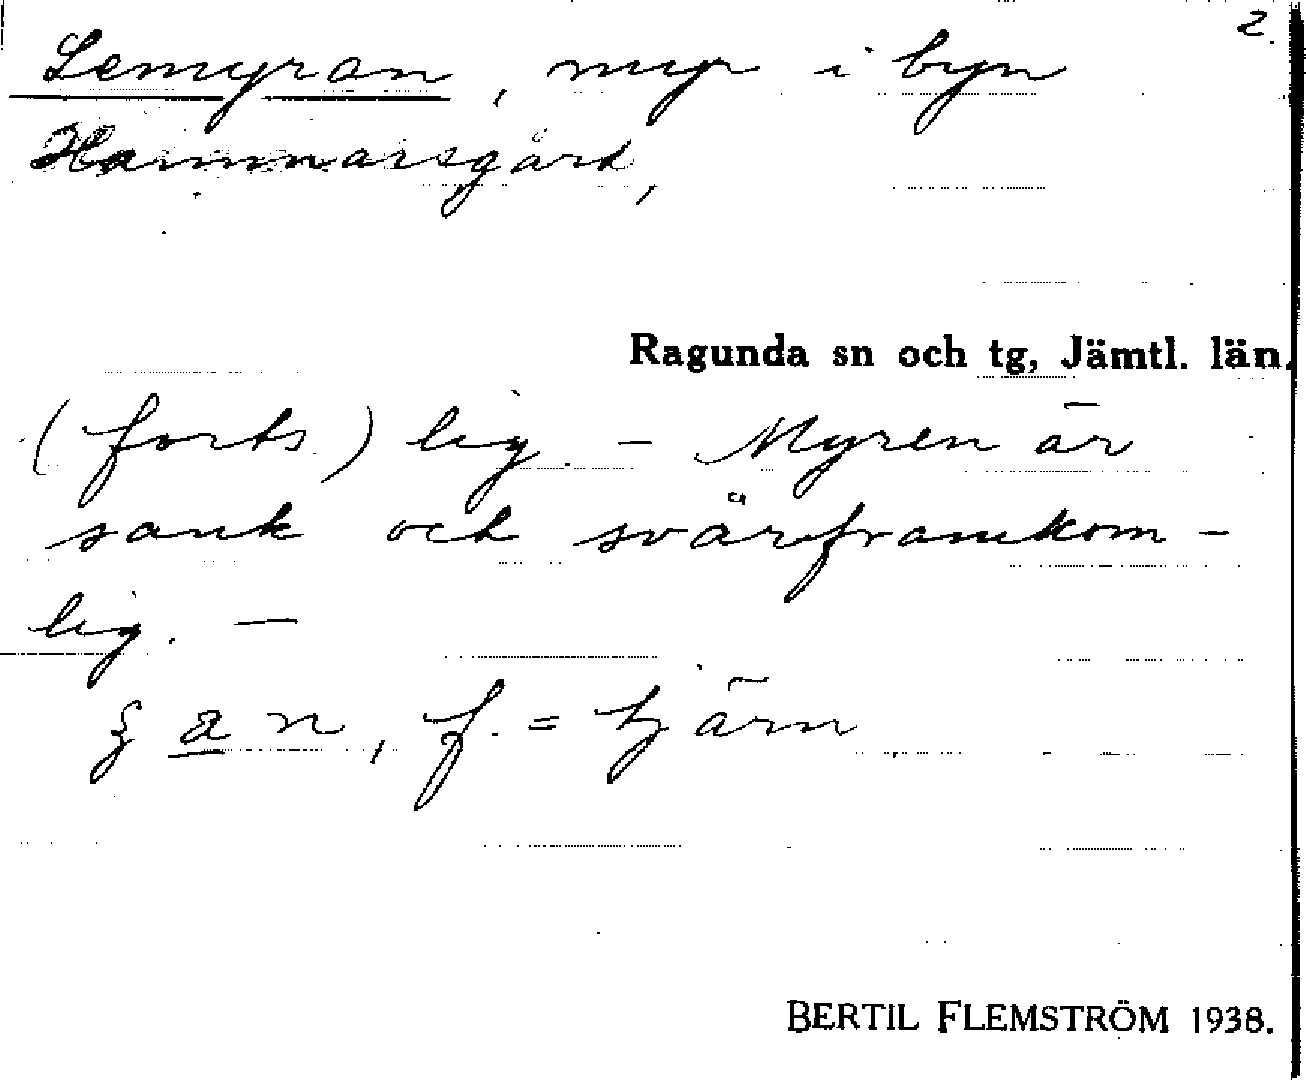 2.
Lemyran, myr i byn
Hammarsgård,
Ragunda sn och tg, Jämtl. län.
(forts) lig - Myren är
sank och svårframkom-
lig. —
ʒan, f. = tjärn
BERTIL FLEMSTRÖM 1938.